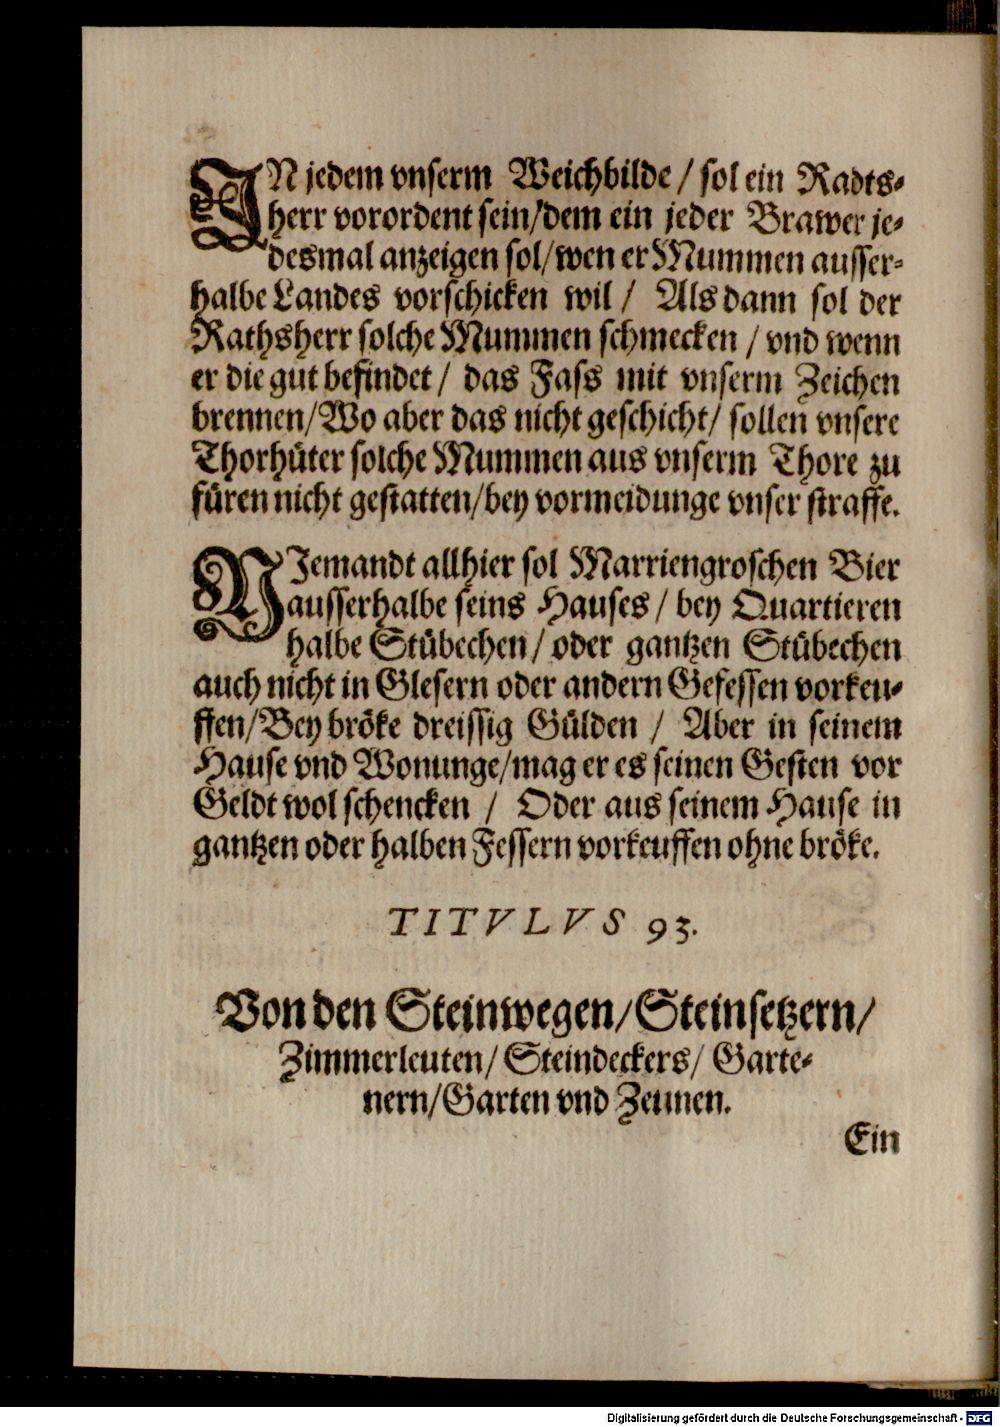 IN jedem vnserm Weichbilde / sol ein Radts-
herr vorordent sein/dem ein jeder Brawer je-
desmal anzeigen sol/wen er Mummen ausser-
halbe Landes vorschicken wil / Als dann sol der
Rathsherr solche Mummen schmecken / vnd wenn
er die gut befindet / das Fass mit vnserm Zeichen
brennen/Wo aber das nicht geschicht/ sollen vnsere
Thorhüter solche Mummen aus vnserm Thore zu
füren nicht gestatten/bey vormeidunge vnser straffe.
NIemandt allhier sol Marriengroschen Bier
ausserhalbe seins Hauses / bey Quartieren
halbe Stübechen / oder gantzen Stübechen
auch nicht in Glesern oder andern Gefessen vorkeu-
ffen/Bey bröke dreissig Gülden / Aber in seinem
Hause vnd Wonunge/mag er es seinen Gesten vor
Geldt wol schencken / Oder aus seinem Hause in
gantzen oder halben Fessern vorkeuffen ohne bröke.
TITVLVS 93.
Von den Steinwegen/Steinsetzern/
Zimmerleuten/ Steindeckers/ Garte-
nern/Garten vnd Zeunen.
Ein
Digitalisierung gefördert durch die Deutsche Forschungsgemeinschaft - DFG